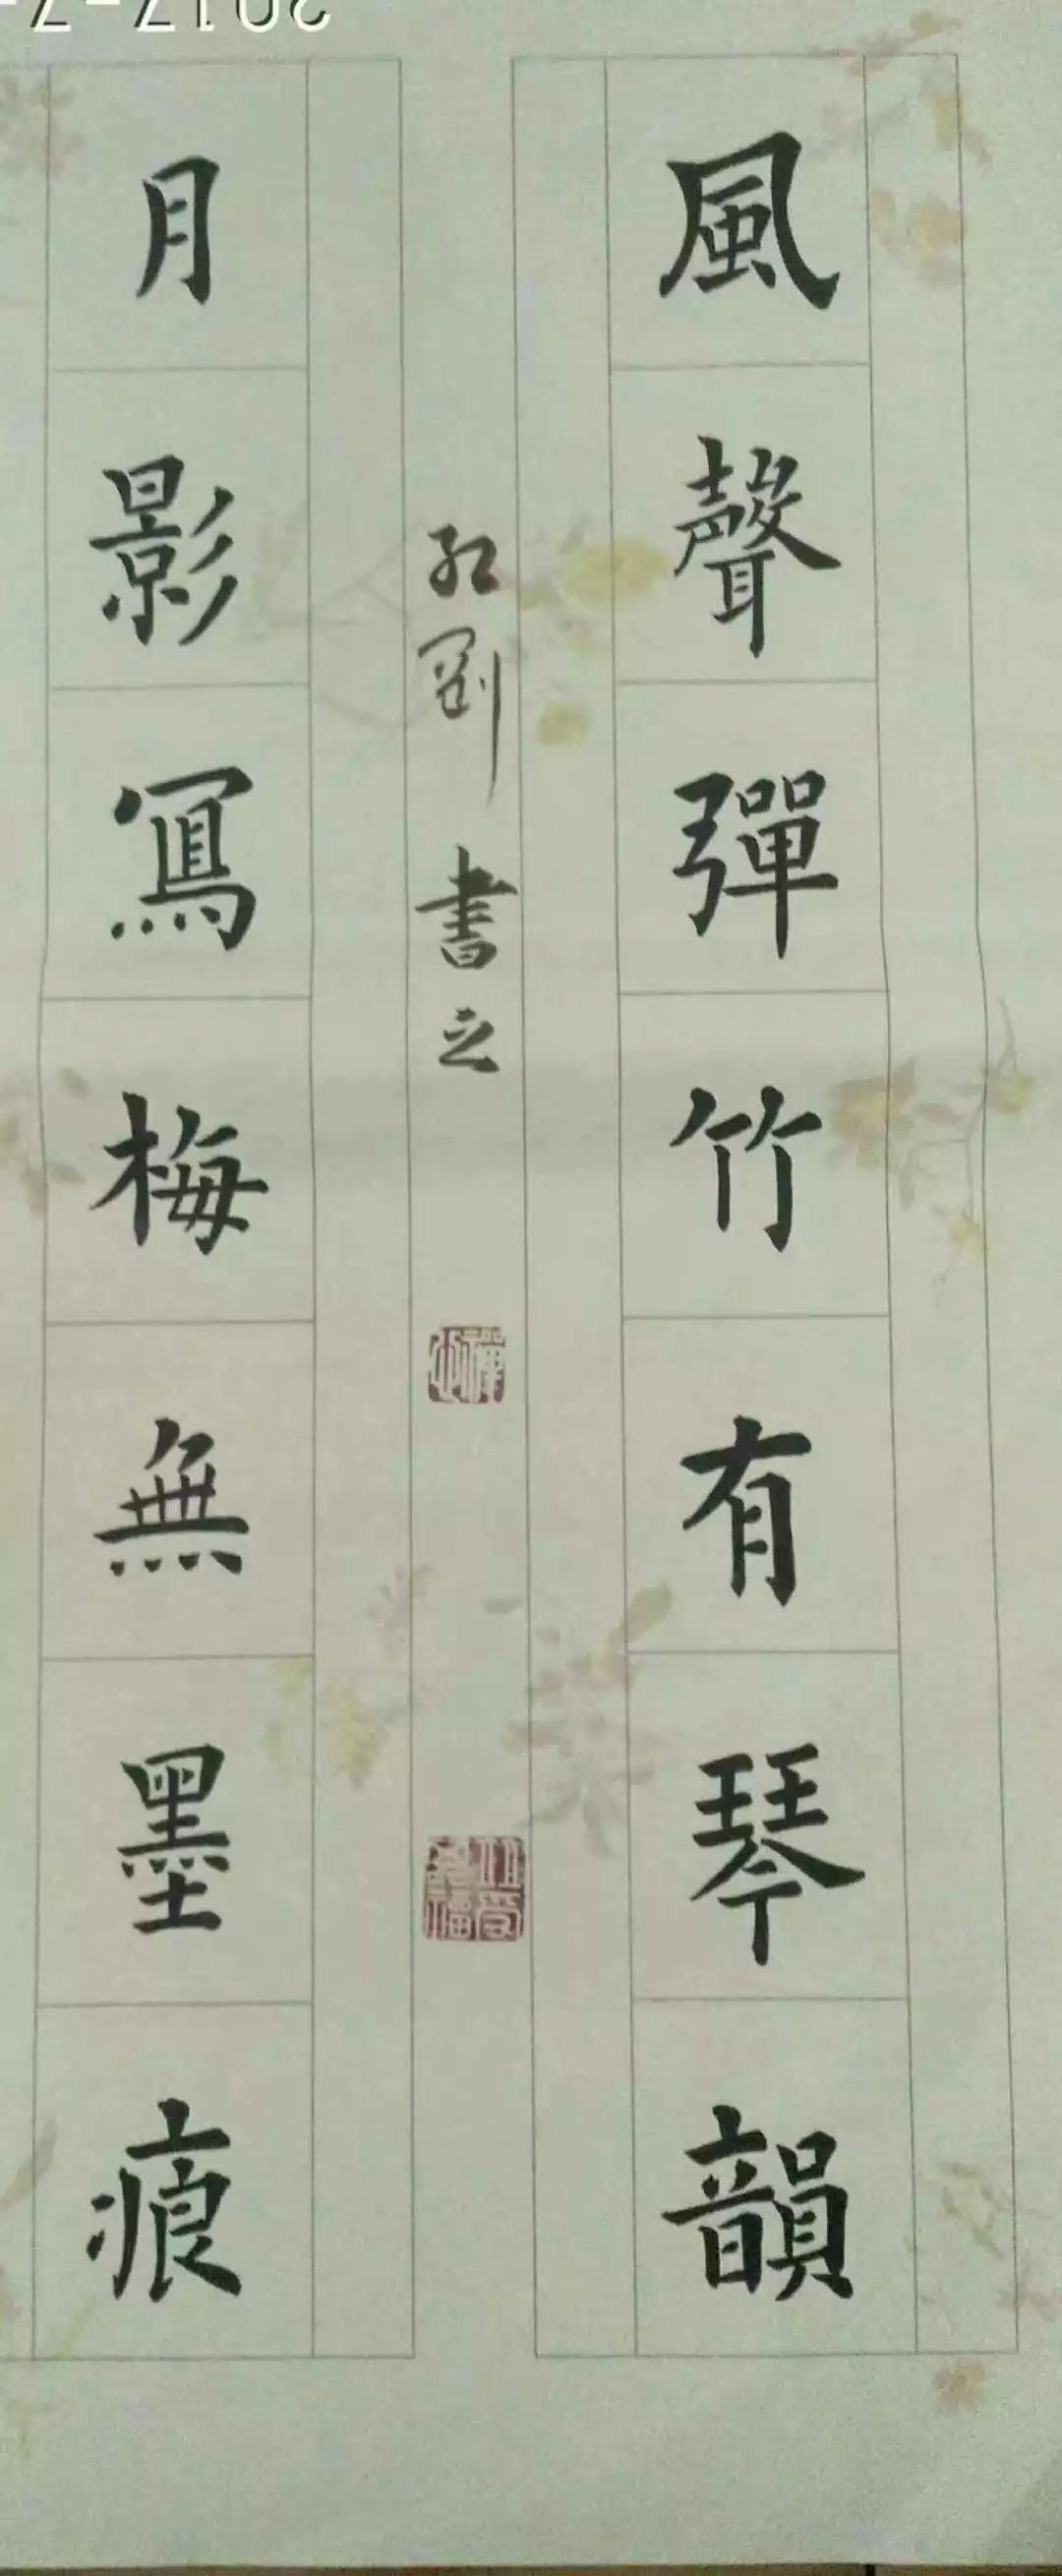 風聲彈竹有琴韻
月影寫梅無墨痕
紅剛書之